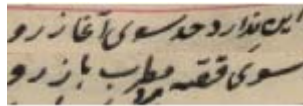 این ندارد حد سوی آغاز رو
سوی قصه مطرب باز رو